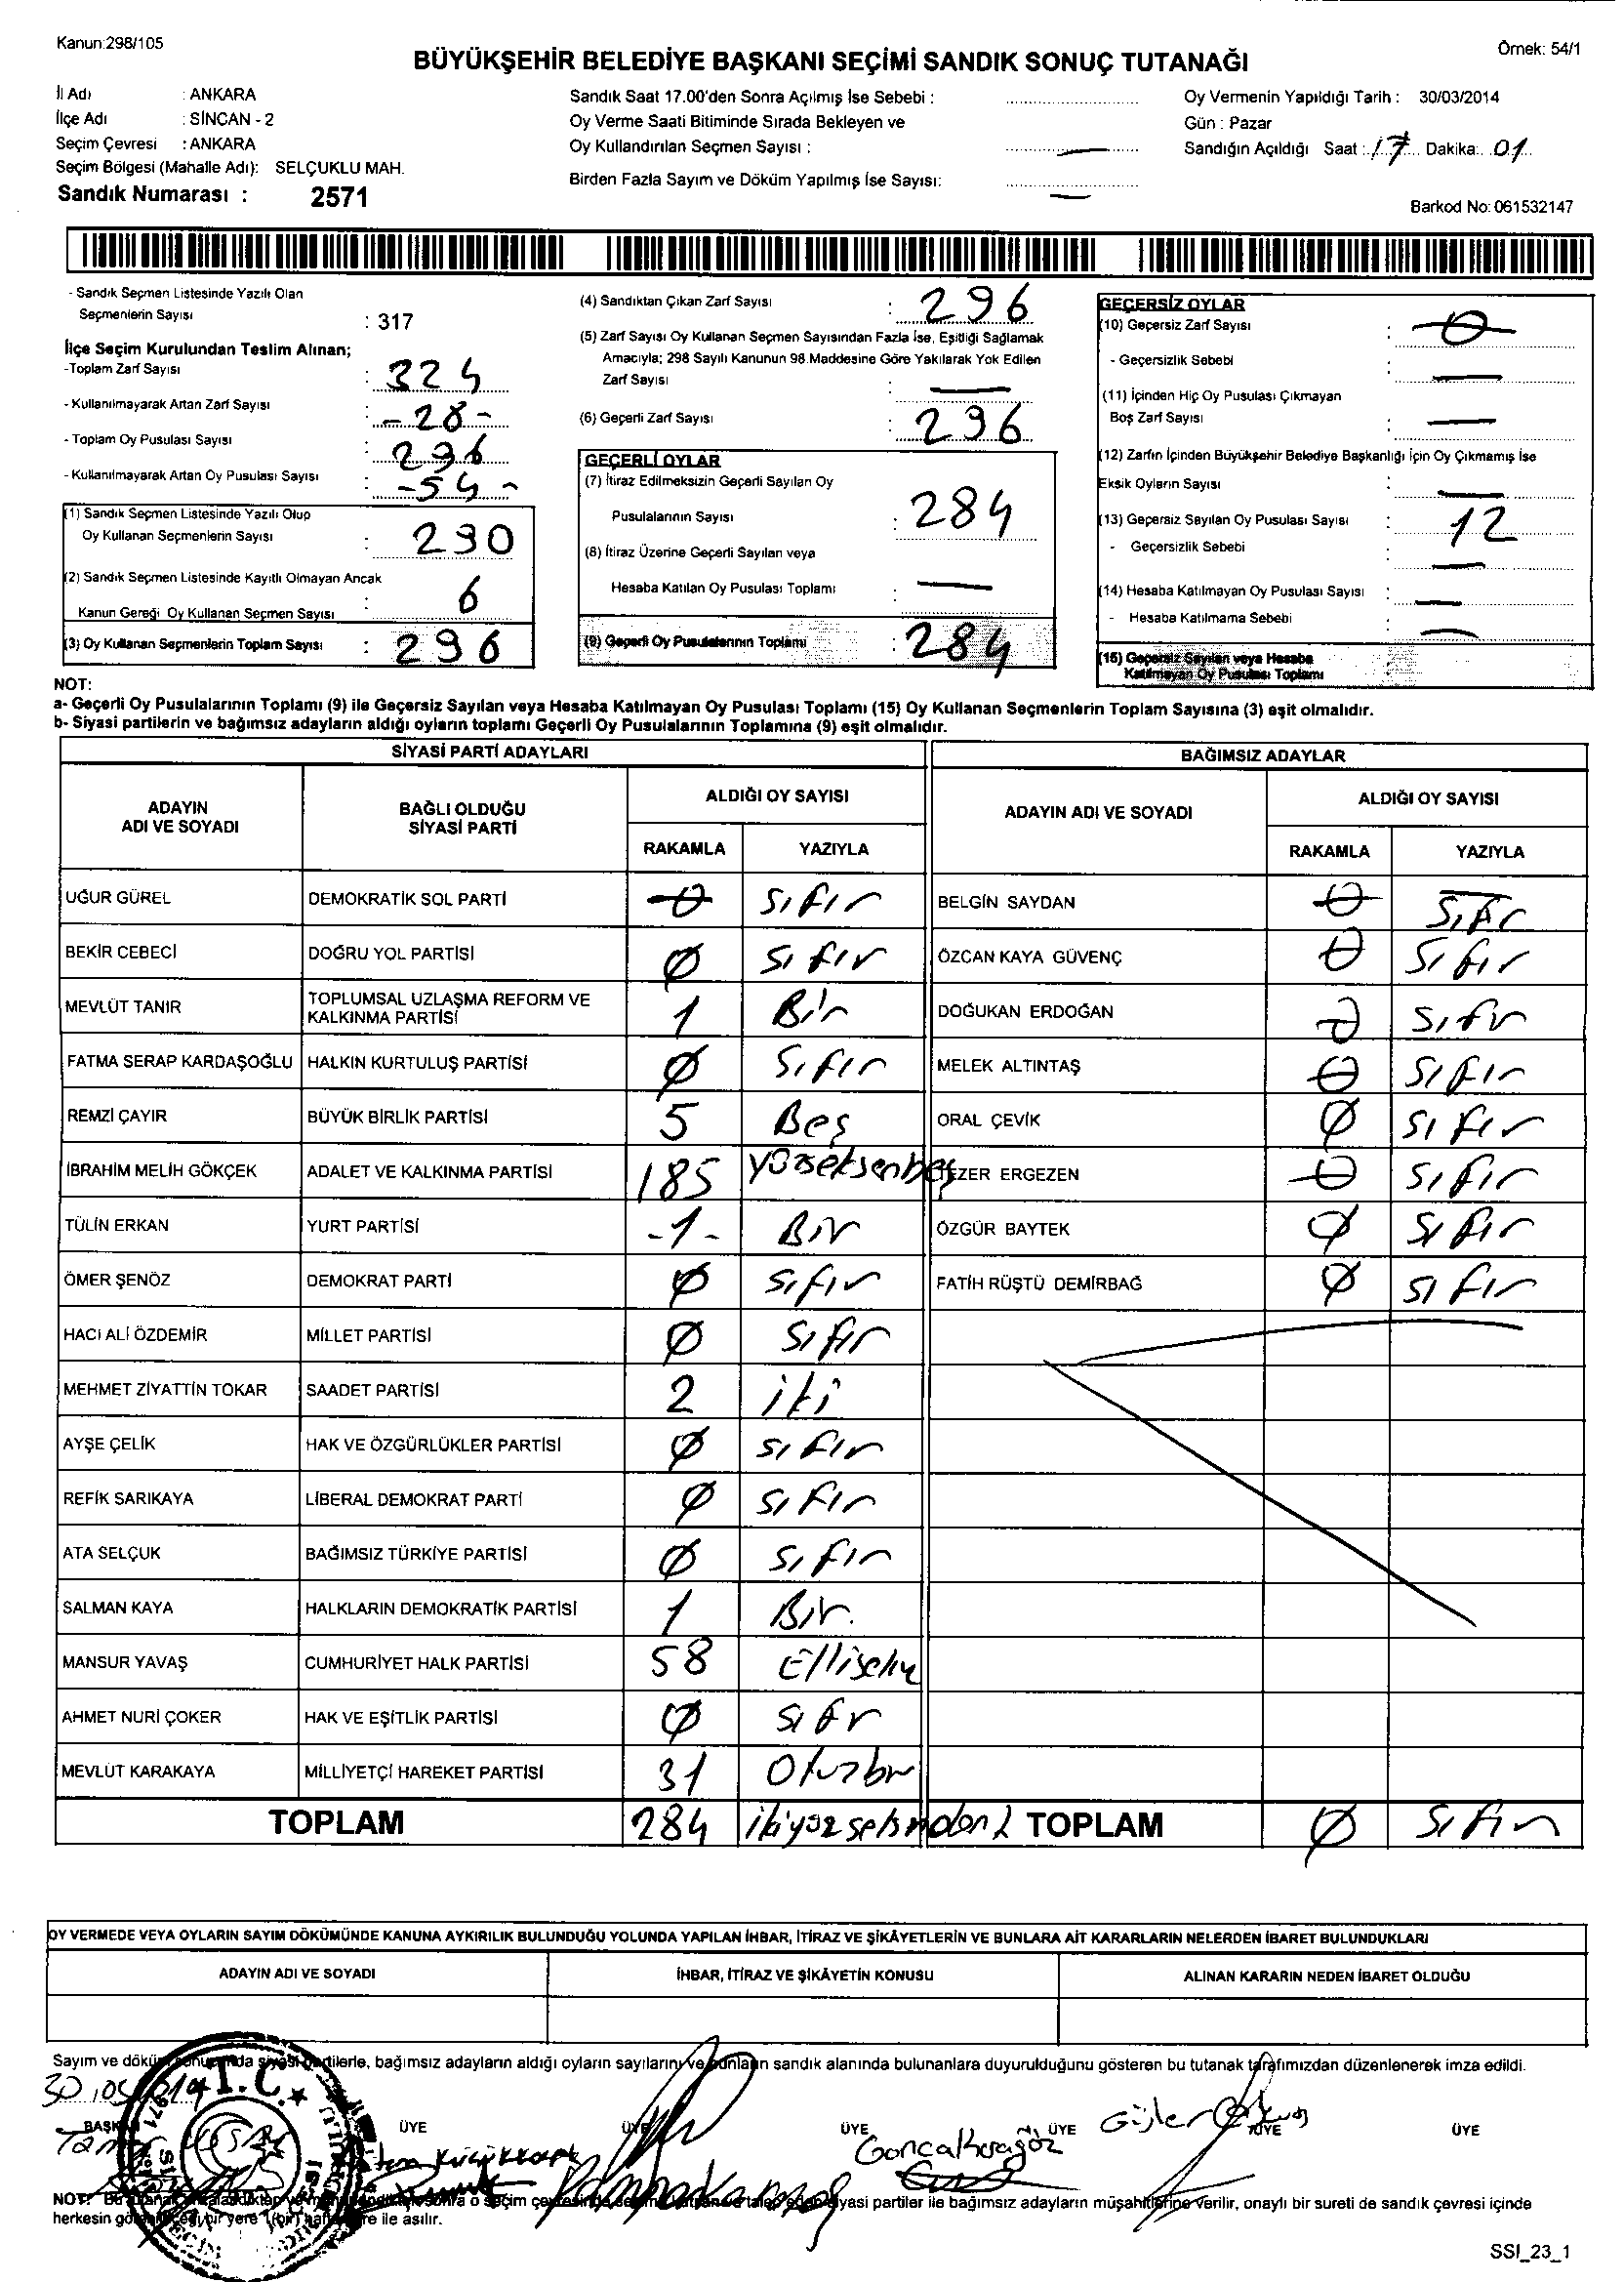 Kanun:298/105
Örnek: 54/1
BÜYÜKŞEHİR BELEDİYE BAŞKANI SEÇİMİ SANDIK SONUÇ TUTANAĞI
İl Adı : ANKARA
İlçe Adı : SİNCAN - 2
Seçim Çevresi : ANKARA
Seçim Bölgesi (Mahalle Adı): SELÇUKLU MAH.
Sandık Numarası : 2571
Sandık Saat 17.00'den Sonra Açılmış İse Sebebi :
Oy Verme Saati Bitiminde Sırada Bekleyen ve
Oy Kullandırılan Seçmen Sayısı : —
Birden Fazla Sayım ve Döküm Yapılmış İse Sayısı: —
Oy Vermenin Yapıldığı Tarih : 30/03/2014
Gün : Pazar
Sandığın Açıldığı Saat : 17 Dakika: 01
Barkod No: 061532147
- Sandık Seçmen Listesinde Yazılı Olan
Seçmenlerin Sayısı : 317
İlçe Seçim Kurulundan Teslim Alınan;
-Toplam Zarf Sayısı : 324
- Kullanılmayarak Artan Zarf Sayısı : -28-
- Toplam Oy Pusulası Sayısı : 296
- Kullanılmayarak Artan Oy Pusulası Sayısı : -54-
(1) Sandık Seçmen Listesinde Yazılı Olup
Oy Kullanan Seçmenlerin Sayısı : 290
(2) Sandık Seçmen Listesinde Kayıtlı Olmayan Ancak
Kanun Gereği Oy Kullanan Seçmen Sayısı : 6
(3) Oy Kullanan Seçmenlerin Toplam Sayısı : 296
(4) Sandıktan Çıkan Zarf Sayısı : 296
(5) Zarf Sayısı Oy Kullanan Seçmen Sayısından Fazla İse, Eşitliği Sağlamak
Amacıyla; 298 Sayılı Kanunun 98.Maddesine Göre Yakılarak Yok Edilen
Zarf Sayısı : —
(6) Geçerli Zarf Sayısı : 296
GEÇERLİ OYLAR
(7) İtiraz Edilmeksizin Geçerli Sayılan Oy
Pusulalarının Sayısı : 284
(8) İtiraz Üzerine Geçerli Sayılan veya
Hesaba Katılan Oy Pusulası Toplamı : —
(9) Geçerli Oy Pusulalarının Toplamı : 284
GEÇERSİZ OYLAR
(10) Geçersiz Zarf Sayısı : 0
- Geçersizlik Sebebi : —
(11) İçinden Hiç Oy Pusulası Çıkmayan
Boş Zarf Sayısı : —
(12) Zarfın İçinden Büyükşehir Belediye Başkanlığı İçin Oy Çıkmamış İse
Eksik Oyların Sayısı : —
(13) Geçersiz Sayılan Oy Pusulası Sayısı : 12
- Geçersizlik Sebebi : —
(14) Hesaba Katılmayan Oy Pusulası Sayısı : —
- Hesaba Katılmama Sebebi : —
(15) Geçersiz Sayılan veya Hesaba
Katılmayan Oy Pusulası Toplamı :
NOT:
a- Geçerli Oy Pusulalarının Toplamı (9) ile Geçersiz Sayılan veya Hesaba Katılmayan Oy Pusulası Toplamı (15) Oy Kullanan Seçmenlerin Toplam Sayısına (3) eşit olmalıdır.
b- Siyasi partilerin ve bağımsız adayların aldığı oyların toplamı Geçerli Oy Pusulalarının Toplamına (9) eşit olmalıdır.
SİYASİ PARTİ ADAYLARI
ADAYIN ADI VE SOYADI BAĞLI OLDUĞU SİYASİ PARTİ ALDIĞI OY SAYISI
RAKAMLA YAZIYLA
UĞUR GÜREL DEMOKRATİK SOL PARTİ 0 Sıfır
BEKİR CEBECİ DOĞRU YOL PARTİSİ 0 Sıfır
MEVLÜT TANIR TOPLUMSAL UZLAŞMA REFORM VE KALKINMA PARTİSİ 1 Bir
FATMA SERAP KARDAŞOĞLU HALKIN KURTULUŞ PARTİSİ 0 Sıfır
REMZİ ÇAYIR BÜYÜK BİRLİK PARTİSİ 5 Beş
İBRAHİM MELİH GÖKÇEK ADALET VE KALKINMA PARTİSİ 185 yüzseksenbeş
TÜLİN ERKAN YURT PARTİSİ -1- Bir
ÖMER ŞENÖZ DEMOKRAT PARTİ 0 Sıfır
HACI ALİ ÖZDEMİR MİLLET PARTİSİ 0 Sıfır
MEHMET ZİYATTİN TOKAR SAADET PARTİSİ 2 iki
AYŞE ÇELİK HAK VE ÖZGÜRLÜKLER PARTİSİ 0 Sıfır
REFİK SARIKAYA LİBERAL DEMOKRAT PARTİ 0 Sıfır
ATA SELÇUK BAĞIMSIZ TÜRKİYE PARTİSİ 0 Sıfır
SALMAN KAYA HALKLARIN DEMOKRATİK PARTİSİ 1 Bir.
MANSUR YAVAŞ CUMHURİYET HALK PARTİSİ 58 Ellisekiz
AHMET NURİ ÇOKER HAK VE EŞİTLİK PARTİSİ 0 Sıfır
MEVLÜT KARAKAYA MİLLİYETÇİ HAREKET PARTİSİ 31 Otuzbir
TOPLAM 284 ikiyüzseksendört
BAĞIMSIZ ADAYLAR
ADAYIN ADI VE SOYADI ALDIĞI OY SAYISI
RAKAMLA YAZIYLA
BELGİN SAYDAN 0 Sıfır
ÖZCAN KAYA GÜVENÇ 0 Sıfır
DOĞUKAN ERDOĞAN 0 Sıfır
MELEK ALTINTAŞ 0 Sıfır
ORAL ÇEVİK 0 Sıfır
EZER ERGEZEN 0 Sıfır
ÖZGÜR BAYTEK 0 Sıfır
FATİH RÜŞTÜ DEMİRBAĞ 0 Sıfır
TOPLAM 0 Sıfır
OY VERMEDE VEYA OYLARIN SAYIM DÖKÜMÜNDE KANUNA AYKIRILIK BULUNDUĞU YOLUNDA YAPILAN İHBAR, İTİRAZ VE ŞİKÂYETLERİN VE BUNLARA AİT KARARLARIN NELERDEN İBARET BULUNDUKLARI
ADAYIN ADI VE SOYADI İHBAR, İTİRAZ VE ŞİKÂYETİN KONUSU ALINAN KARARIN NEDEN İBARET OLDUĞU
Sayım ve döküm sonucunda siyasi partilerle, bağımsız adayların aldığı oyların sayılarını ve bunların sandık alanında bulunanlara duyurulduğunu gösteren bu tutanak tarafımızdan düzenlenerek imza edildi.
T.C.
BAŞKAN ÜYE ÜYE ÜYE ÜYE ÜYE ÜYE
Gonca Karagöz
NOT: Bu tutanak sonra o seçim çevresinde seçime katılan ve talep eden siyasi partiler ile bağımsız adayların müşahitlerine verilir, onaylı bir sureti de sandık çevresi içinde
herkesin göreceği bir yere 1(bir) hafta süre ile asılır.
SSI_23_1